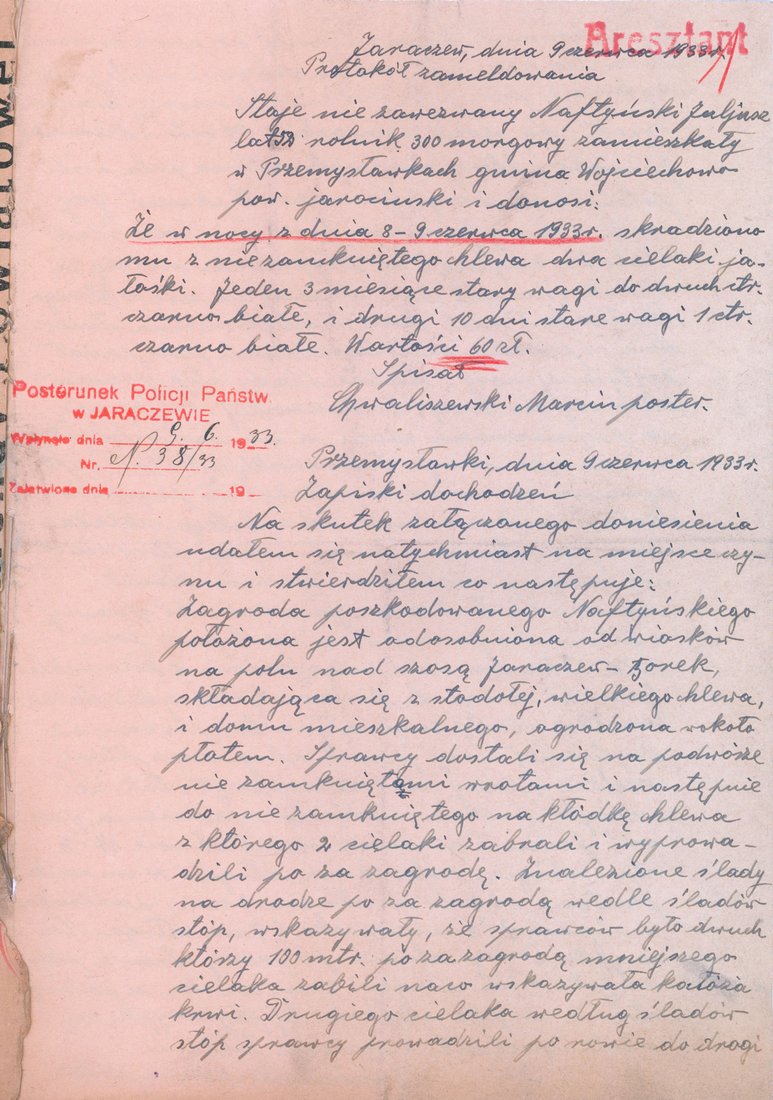 Aresztant
Jaraczew, dnia 9 czerwca 1933 r.
Protokół zameldowania
Staje nie zawezwany Naftyński Juljusz
lat rolnik 300 morgowy zamieszkały
w Przemysławkach gmina Wojciechowo
pow. jarocinski i donosi:
Że w nocy z dnia 8-9 czerwca 1933 r. skradziono
mu z niezamkniętego chlewa dwa cielaki ja-
łośki. Jeden 3 miesiące stary wagi do dwuch ctr.
czarno białe, i drugi 10 dni stare wagi 1 ctr.
czarno białe. Wartości 60 zł.
Spisał
Chwaliszewski Marcin poster.
Posterunek Policji Państw.
w JARACZEWIE
Wpłynęło dnia 9. 6. 1933.
Nr. N. 38/33
Załatwiono dnia 19
Przemysławki, dnia 9 czerwca 1933 r.
Zapiski dochodzeń
Na skutek załączonego doniesienia
udałem się natychmiast na miejsce czy-
nu i stwierdziłem co następuje:
Zagroda poszkodowanego Naftyńskiego
położona jest odosobniona od wiosków
na polu nad szosą Jaraczew - Borek,
składająca się z stodołej, wielkiego chlewa,
i domu mieszkalnego, ogrodzona wokoło
płotem. Sprawcy dostali się na podwórze
nie zamkniętemi wrotami i następnie
do nie zamkniętego na kłódkę chlewa
z którego 2 cielaki zabrali i wyprowa-
dzili po za zagrodę. Znalezione ślady
na drodze po za zagrodą wedle śladów
stóp, wskazywały, że sprawców było dwuch
którzy 100 mtr. po za zagrodą mniejszego
cielaka zabili naco wskazywała kałóża
krwi. Drugiego cielaka według śladów
stóp sprawcy prowadzili po rowie do drogi